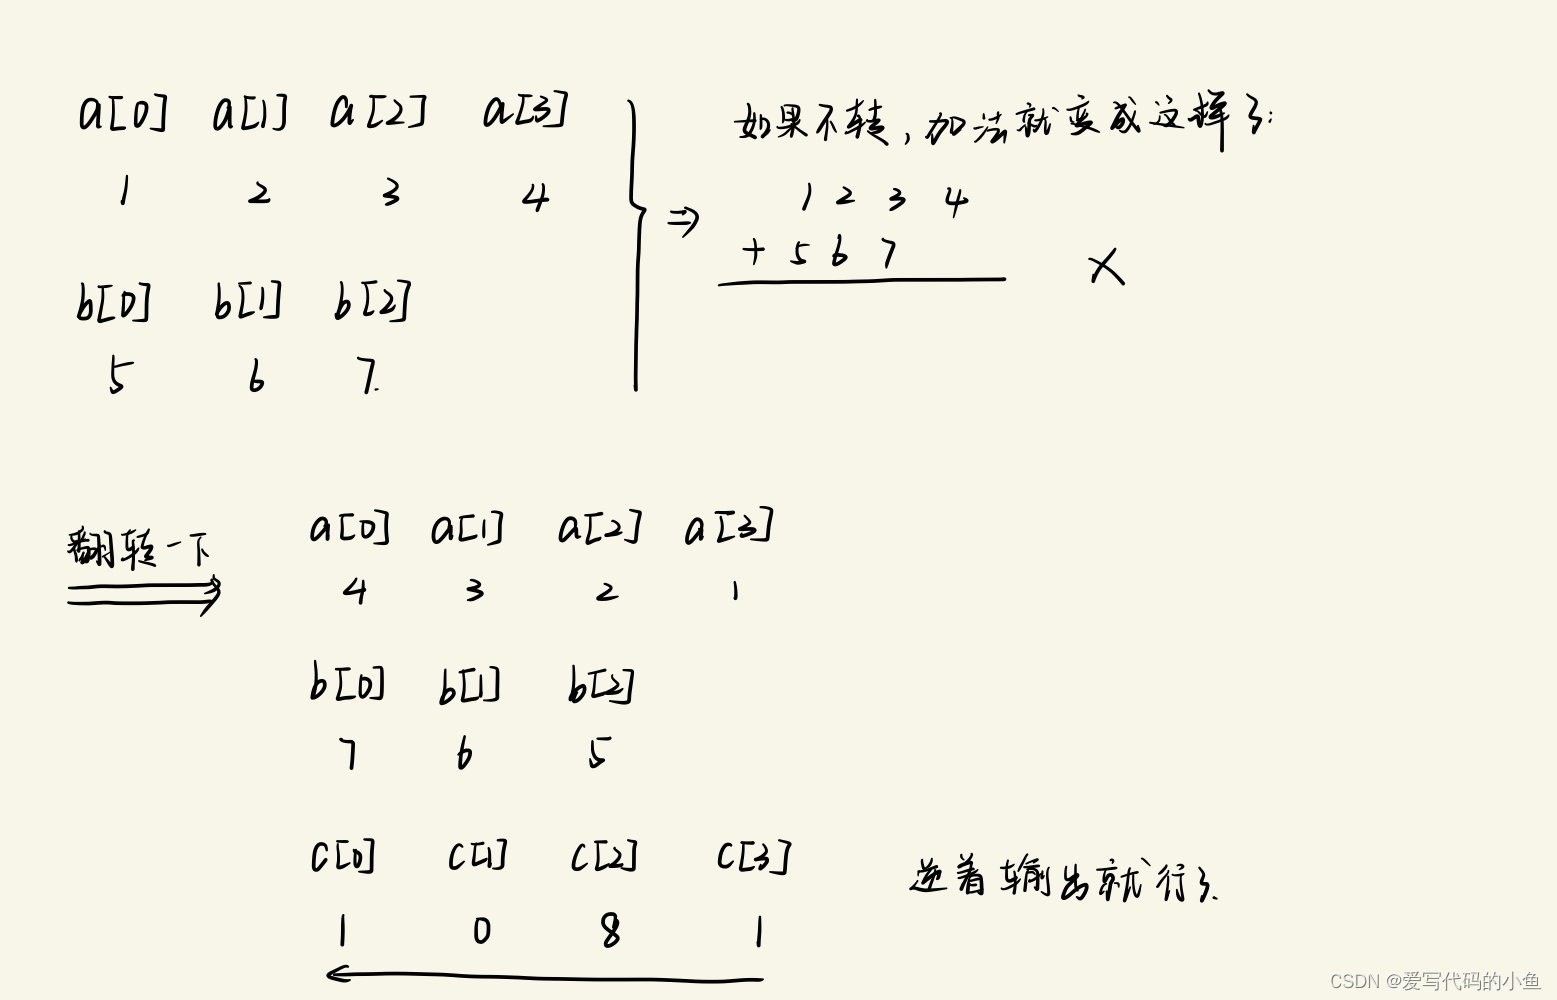 a[0] a[1] a[2] a[3]
1 2 3 4
b[0] b[1] b[2]
5 6 7.
⇒
如果不转，加法就变成这样了：
1 2 3 4
+ 5 6 7
X
翻转一下
a[0] a[1] a[2] a[3]
4 3 2 1
b[0] b[1] b[2]
7 6 5
c[0] c[1] c[2] c[3]
1 0 8 1
逆着输出就行了.
CSDN @爱写代码的小鱼